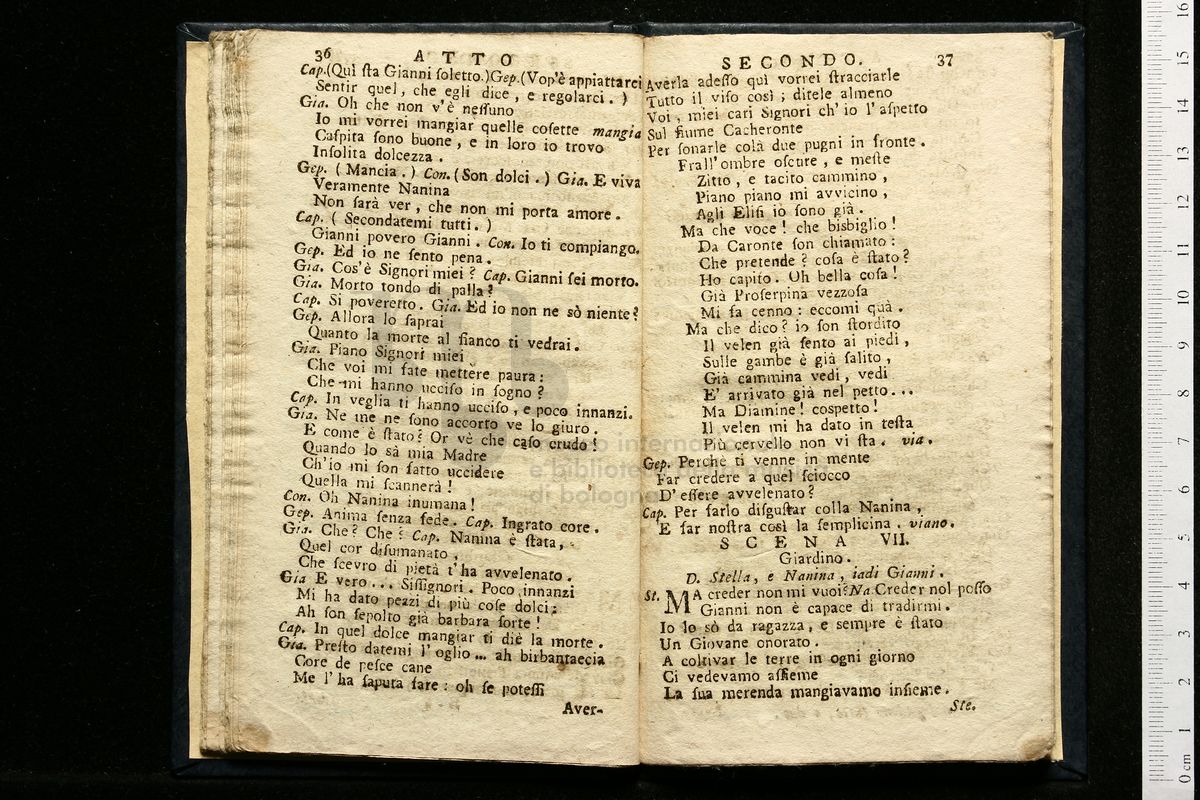 36 ATTO
Cap.(Quì ſta Gianni ſoletto.)Gep.(Vop'è appiattarci
Sentir quel, che egli dice, e regolarci. )
Gia. Oh che non v'è neſſuno
Io mi vorrei mangiar quelle coſette mangia
Caſpita ſono buone, e in loro io trovo
Inſolita dolcezza.
Gep. ( Mancia. ) Con. (Son dolci. ) Gia. E viva
Veramente Nanina
Non ſarà ver, che non mi porta amore.
Cap. ( Secondatemi tutti. )
Gianni povero Gianni. Con. Io ti compiango.
Gep. Ed io ne ſento pena.
Gia. Cos'è Signori miei? Cap. Gianni ſei morto.
Gia. Morto tondo di palla?
Cap. Si poveretto. Gia. Ed io non ne sò niente?
Gep. Allora lo ſaprai
Quanto la morte al fianco ti vedrai.
Gia. Piano Signori miei
Che voi mi fate mettere paura:
Che mi hanno ucciſo in ſogno?
Cap. In veglia ti hanno ucciſo, e poco innanzi.
Gia. Ne me ne ſono accorto ve lo giuro.
E come è ſtato? Or vè che caſo crudo!
Quando lo sà mia Madre
Ch'io mi ſon fatto uccidere
Quella mi ſcannerà!
Con. Oh Nanina inumana!
Gep. Anima ſenza fede. Cap. Ingrato core.
Gia. Che? Che? Cap. Nanina è ſtata,
Quel cor diſumanato,
Che ſcevro di pietà t'ha avvelenato.
Gia E vero... Siſſignori. Poco innanzi
Mi ha dato pezzi di più coſe dolci;
Ah ſon ſepolto già barbara ſorte!
Cap. In quel dolce mangiar ti diè la morte.
Gia. Preſto datemi l'oglio... ah birbantaecia
Core de peſce cane
Me l'ha ſaputa fare: oh ſe poteſſi
Aver-
SECONDO. 37
Averla adeſſo quì vorrei ſtracciarle
Tutto il viſo così; ditele almeno
Voi, miei cari Signori ch'io l'aſpetto
Sul fiume Cacheronte
Per ſonarle colà due pugni in fronte.
Frall'ombre oſcure, e meſte
Zitto, e tacito cammino,
Piano piano mi avvicino,
Agli Eliſi io ſono già.
Ma che voce! che bisbiglio!
Da Caronte ſon chiamato:
Che pretende? coſa è ſtato?
Ho capito. Oh bella coſa!
Già Proſerpina vezzoſa
Mi fa cenno: eccomi quà.
Ma che dico? io ſon ſtordito
Il velen già ſento ai piedi,
Sulle gambe è già ſalito,
Già cammina vedi, vedi
E' arrivato già nel petto...
Ma Diamine! coſpetto!
Il velen mi ha dato in teſta
Più cervello non vi ſta. via.
Gep. Perchè ti venne in mente
Far credere a quel ſciocco
D'eſſere avvelenato?
Cap. Per farlo diſguſtar colla Nanina,
E far noſtra così la ſemplicina. viano.
SCENA VII.
Giardino.
D. Stella, e Nanina, iadi Gianni.
St. MA creder non mi vuoi? Na Creder nol poſſo
Gianni non è capace di tradirmi.
Io lo sò da ragazza, e ſempre è ſtato
Un Giovane onorato.
A coltivar le terre in ogni giorno
Ci vedevamo aſſieme
La ſua merenda mangiavamo inſieme.
Ste.